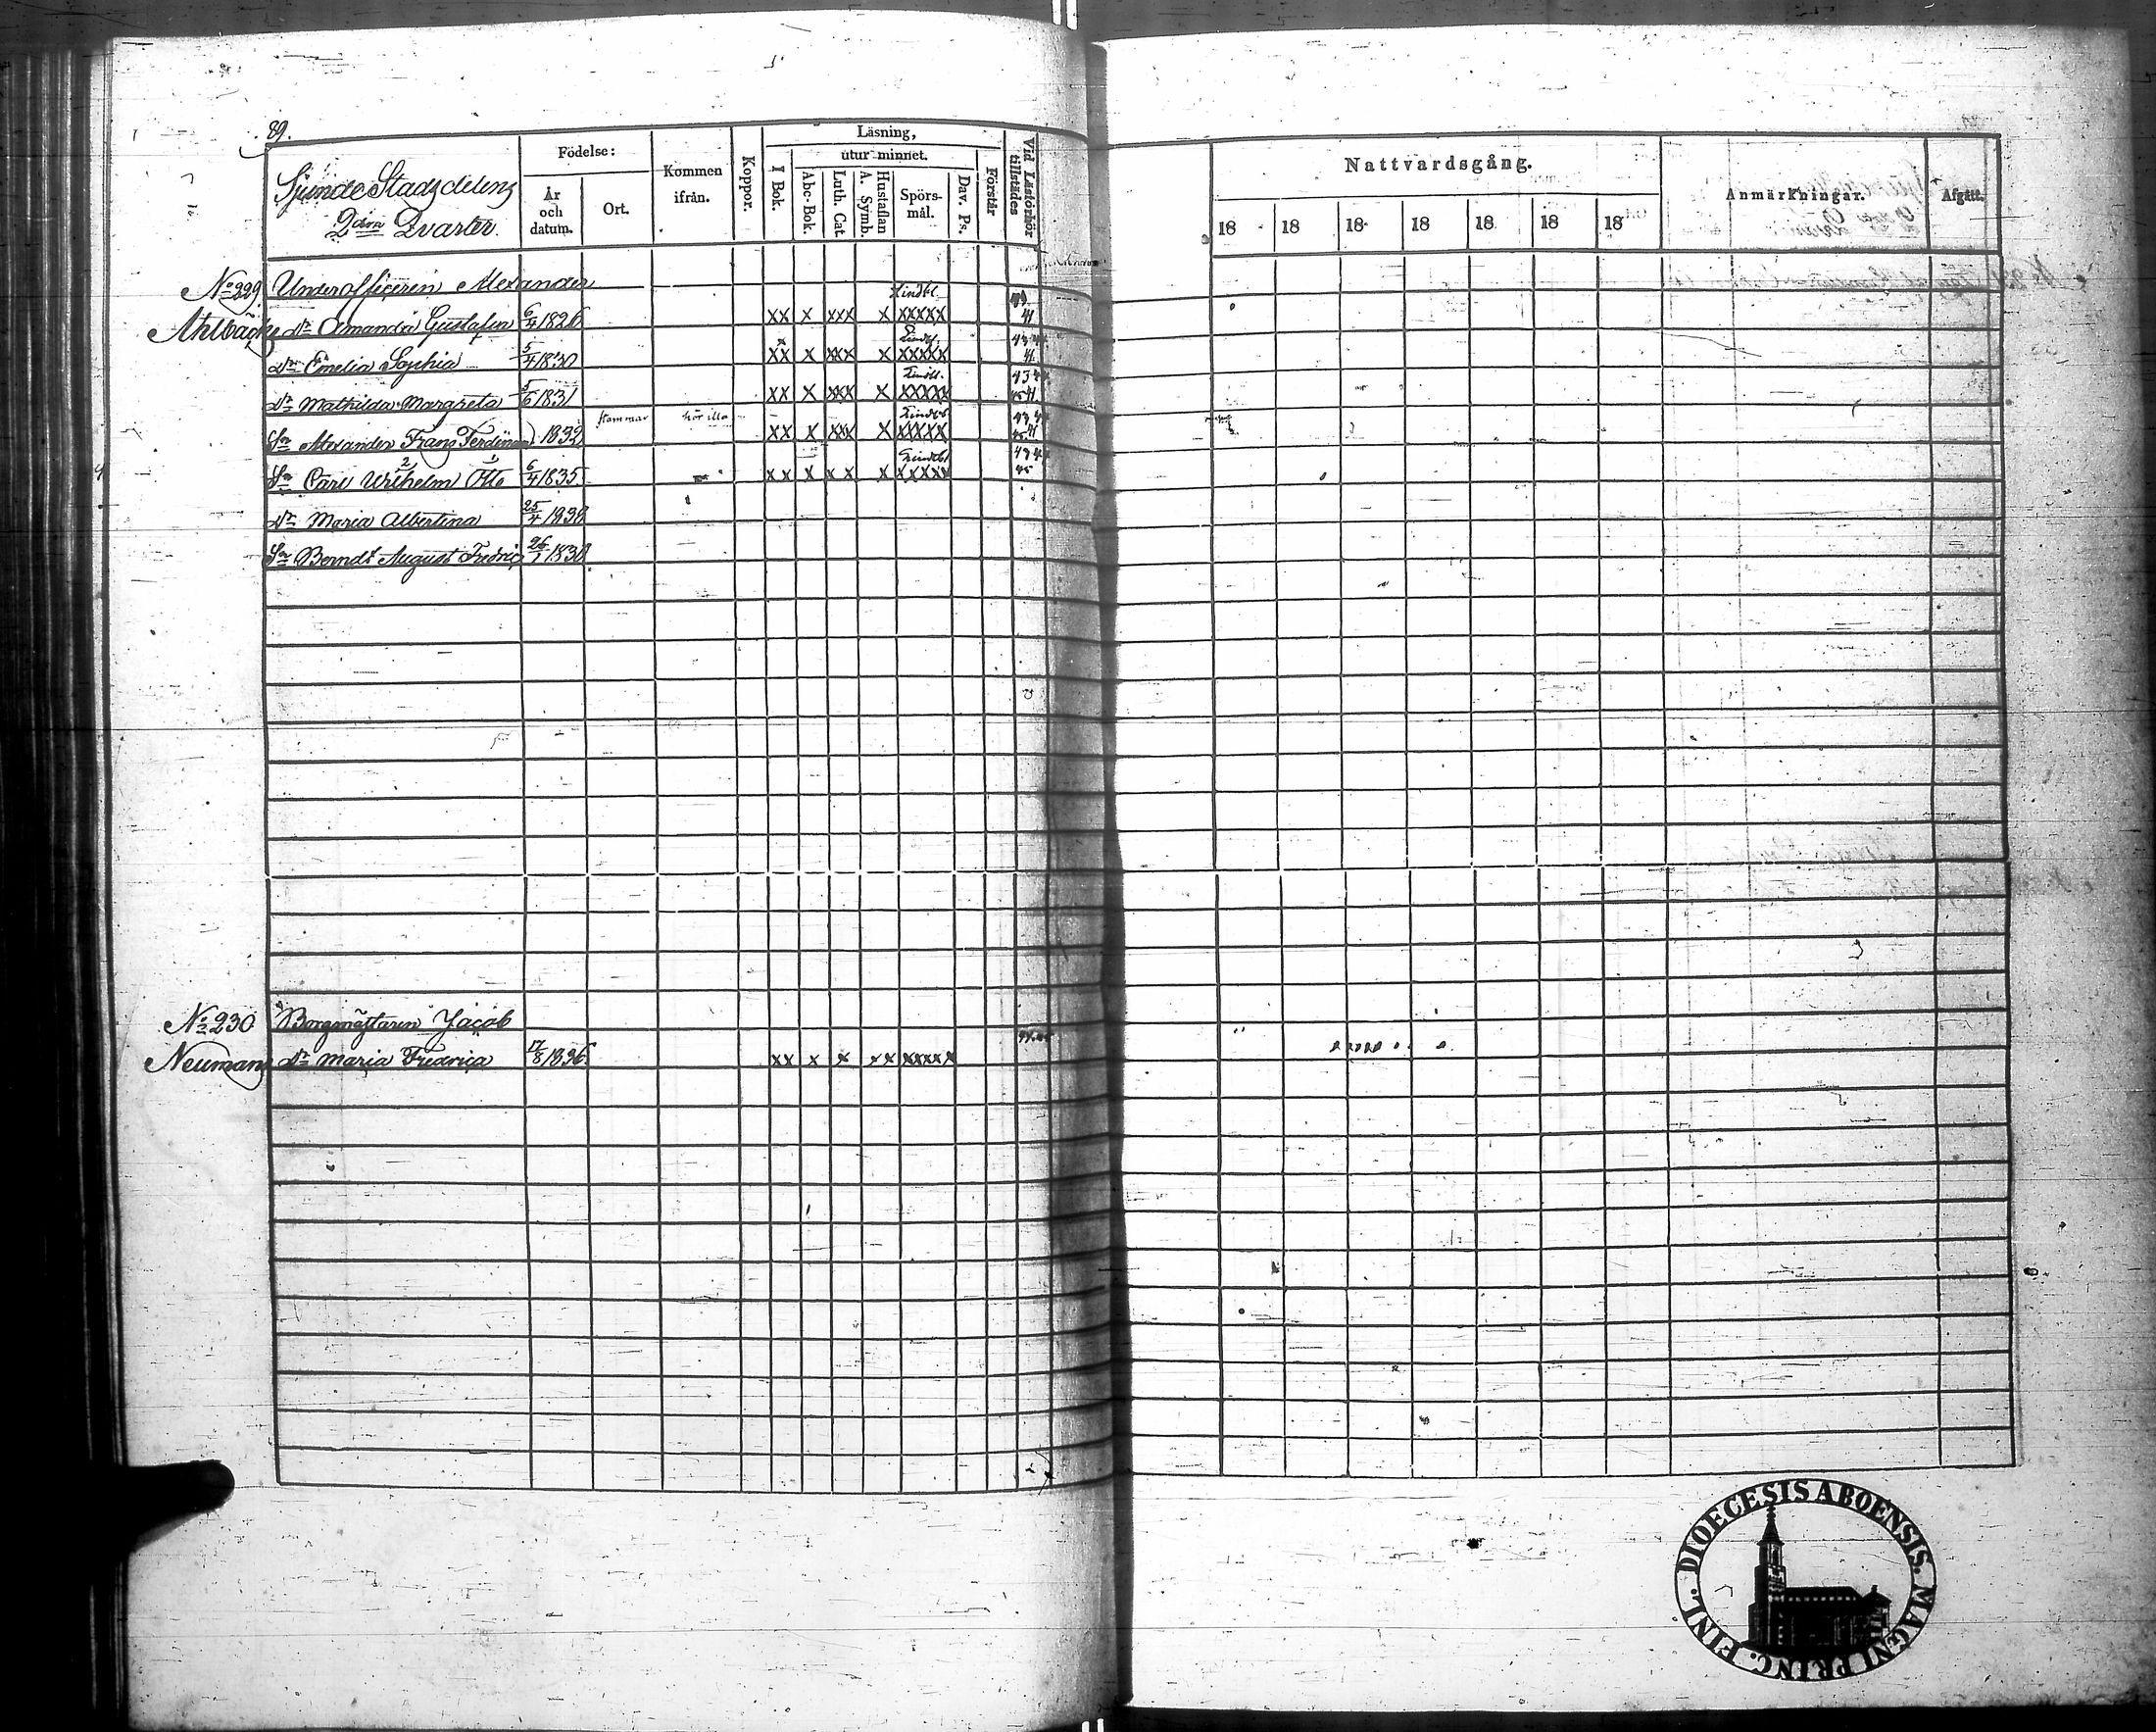 89.
Sjunde Stadsdelens
2dra Qvarter.
Födelse:
År och datum.
Ort.
Kommen ifrån.
Koppor.
Läsning,
I Bok.
utur minnet.
Abc-Bok.
Luth. Cat.
A. Symb. Hustaflan
Spörs-mål.
Dav. Ps.
Förstår
Vid Läsförhör tillstädes
Nattvardsgång.
18 18 18 18 18 18 18
Anmärkningar.
Afgått.
No 229 Underofficeren Alexander
Ahlbäcks dr Amanda Gustafva 6/4 1826 xx x xxx x Lindbl. xxxxx 43 41
dr Emelia Sophia 5/4 1830 xx x xxx x Lindbl. xxxxx 43 41
dr Mathilda Margreta 5/6 1831 xx x xxx x Lindbl. xxxxx 43 45 41
Sn Alexander Frans Ferdinand 1832 stammar hör illa xx x xxx x Lindbl xxxxx 43 45 41
Sn Carl Wilhelm Otto 6/4 1835 xx x x x x Lindbl xxxxx 43 45
dr Maria Albertina 25/4 1838
Sn Berndt August Fredric 26/1 1830
No 230 Borgmästaren Jacob
Neumans dr Maria Fredrica 17/8 1836 xx x x x x xxxxx
FINL. DIOECESIS ABOENSIS. MAGNI PRINC.